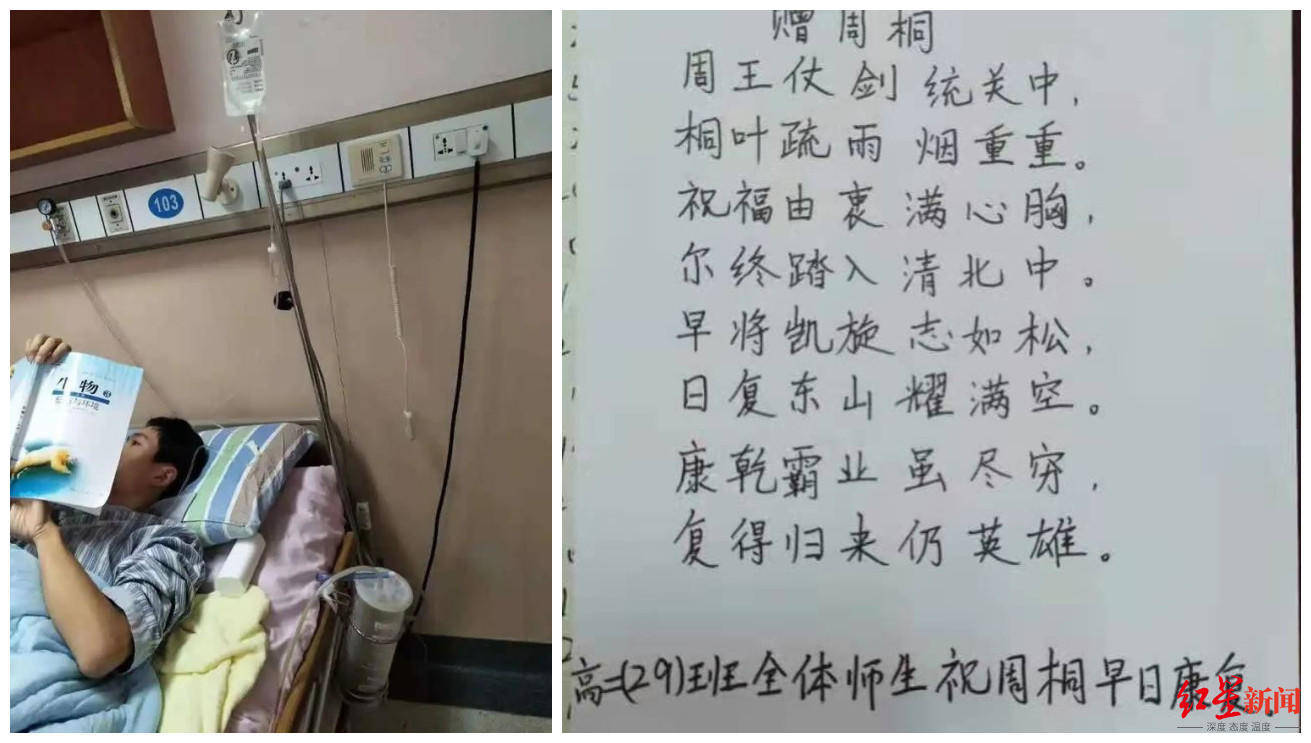 103
生物
3
稳态与环境
赠周桐
周王仗剑统关中，
桐叶疏雨烟重重。
祝福由衷满心胸，
尔终踏入清北中。
早将凯旋志如松，
日复东山耀满空。
康乾霸业虽尽穷，
复得归来仍英雄。
高二(29)班全体师生祝周桐早日康复。
红星新闻
深度 态度 温度